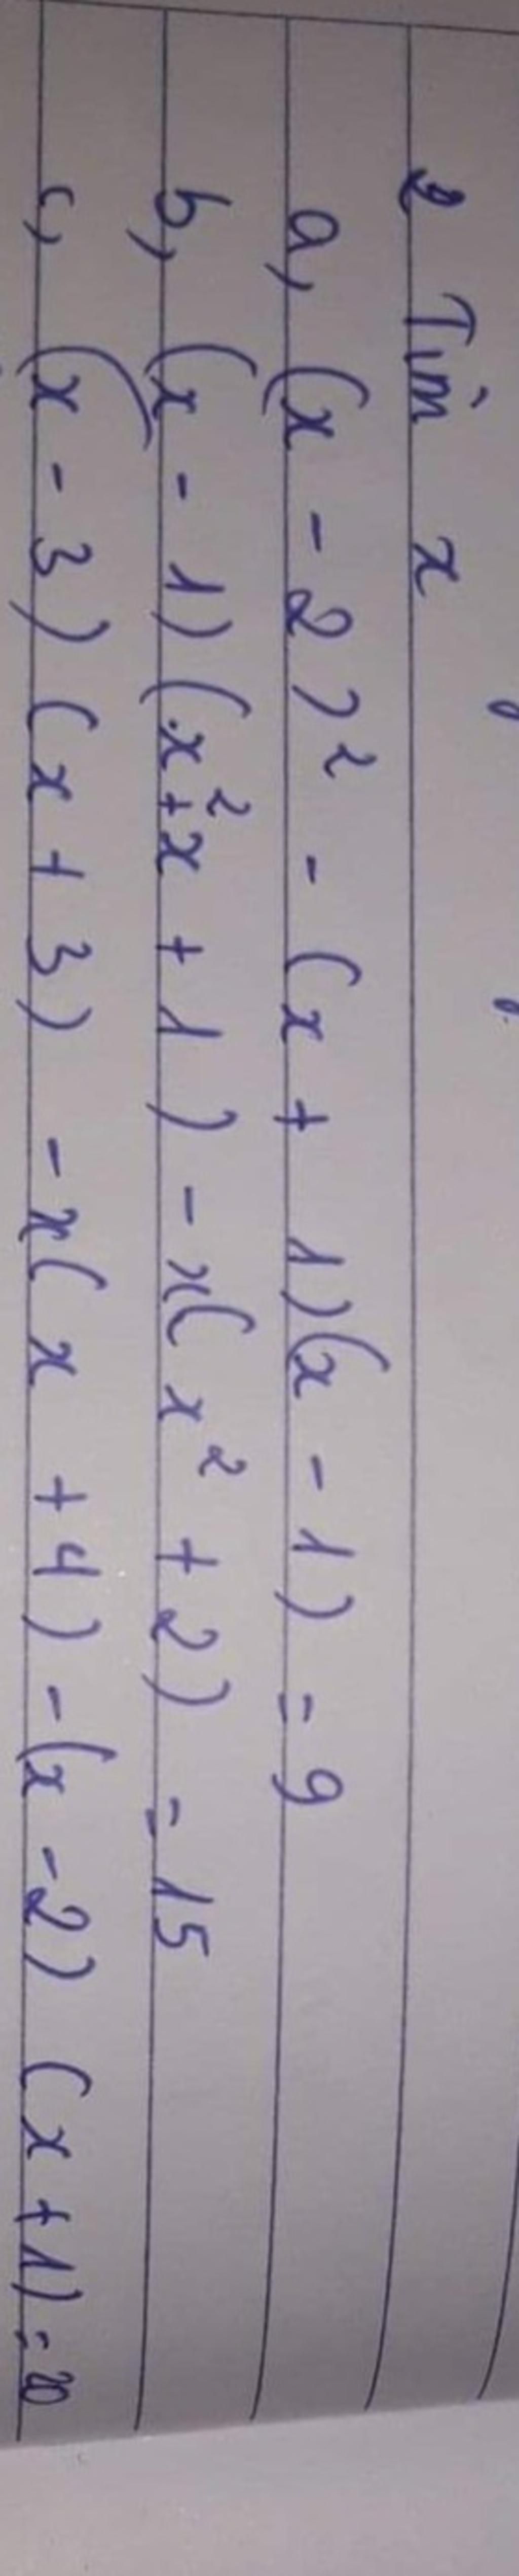 2 Tìm x
a, (x - 2)² - (x + 1)(x - 1) = 9
b, (x - 1)(x² + x + 1) - x(x² + 2) = 15
c, (x - 3)(x + 3) - x(x + 4) - (x - 2)(x + 1) = 20